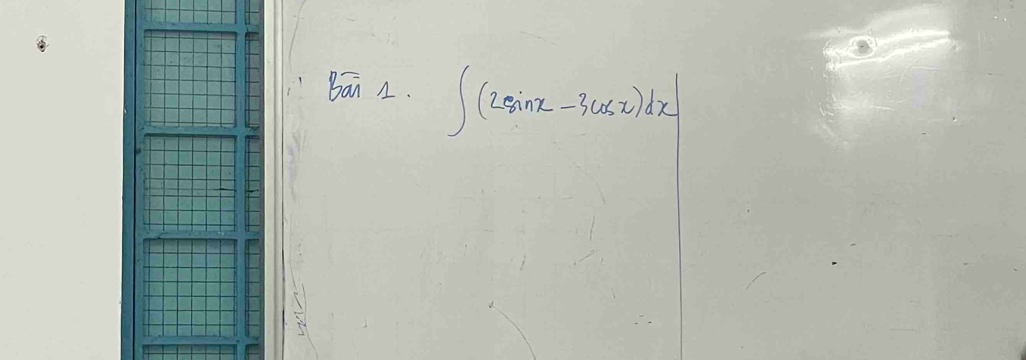 Bài 1. ∫(2sinx - 3cosx)dx